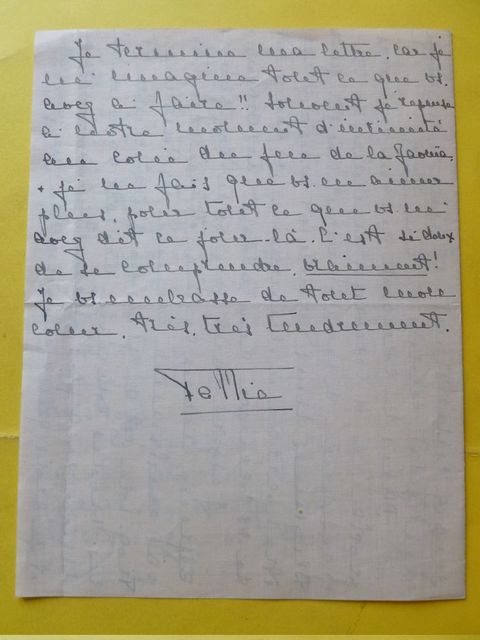 Je termine ma lettre, car je
m'imagine tout ce que vs.
avez à faire!! Souvent je repense
à notre moment d'intimité
au coin du feu de la
+ je ne fais que vs. en aimer
plus, pour tout ce que vs m'
avez dit ce jour-là. C'est si doux
de se comprendre, vraiment!
Je vs embrasse de tout mon
coeur, très, très tendrement.